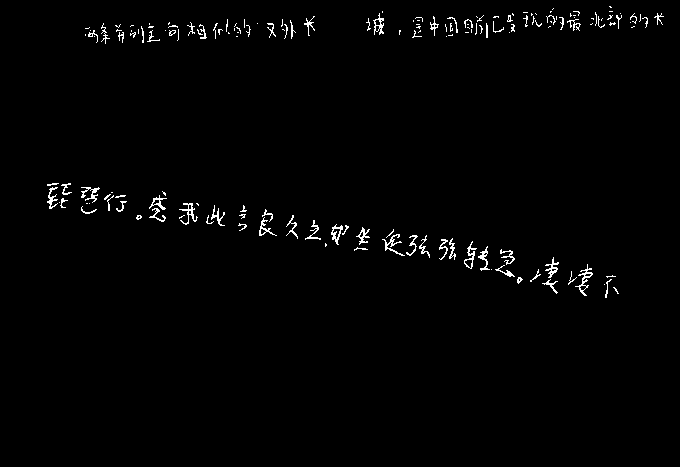 两条首列走向相似的又外长 城，是中国目前已发现的最北部的长
琵琶行。感我此言良久立，却坐促弦弦转急。凄凄不